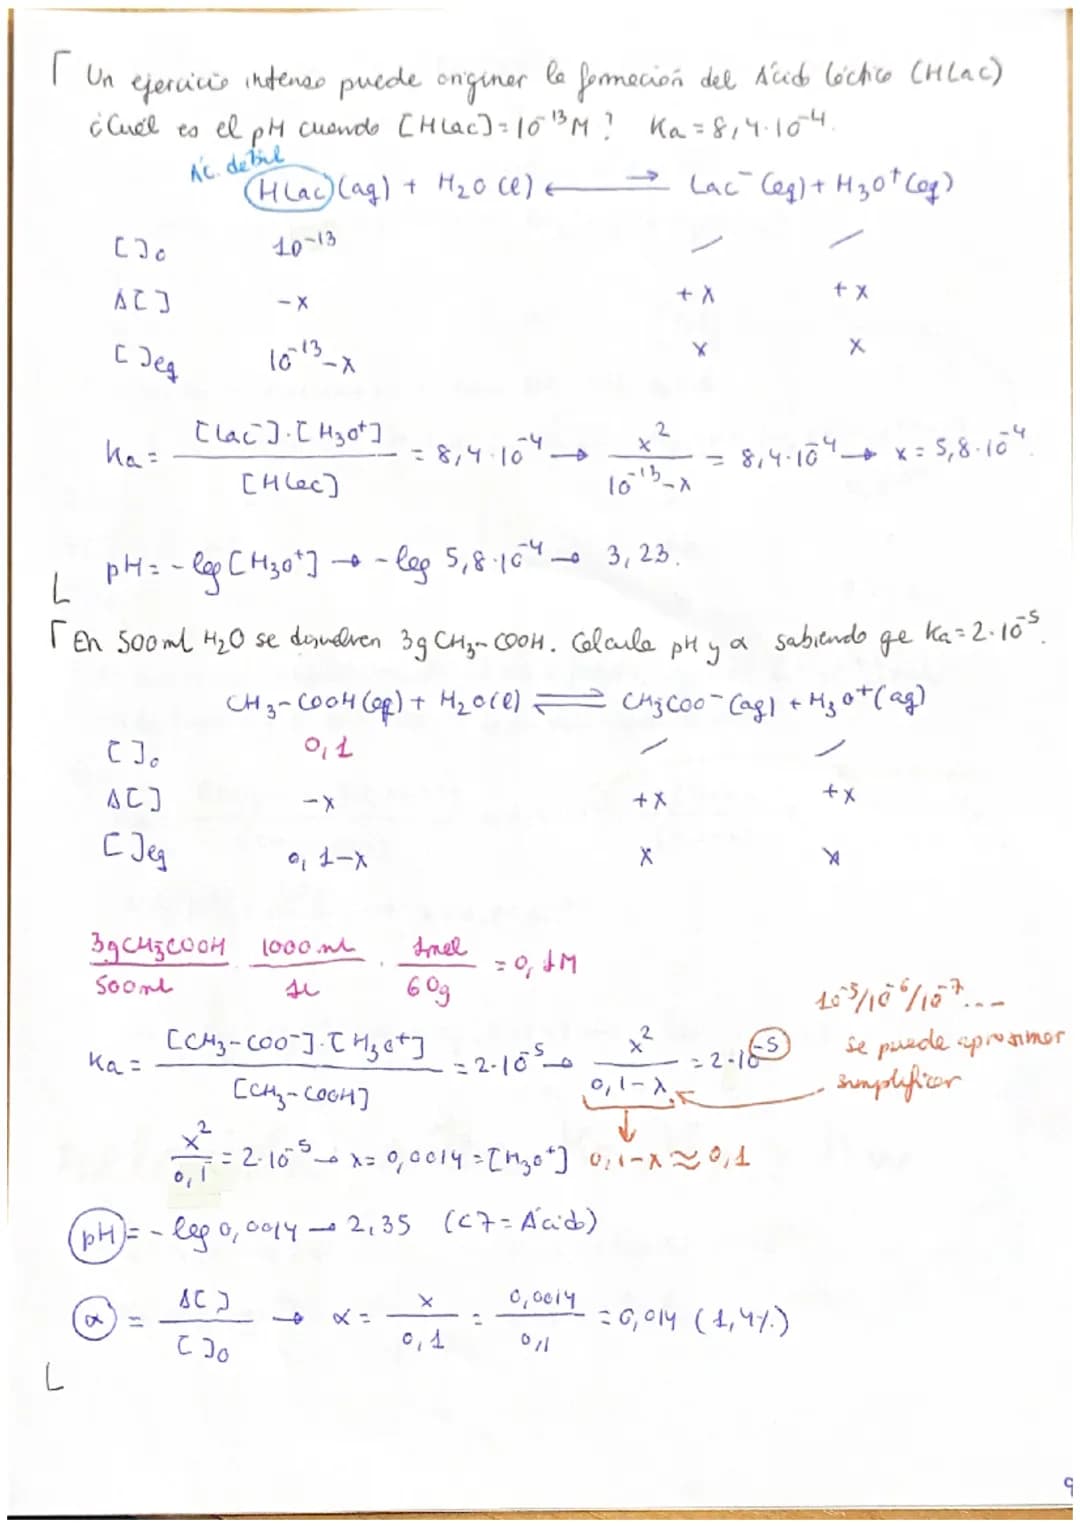 Un ejercicio intenso puede originar la formación del Ácido láctico (HLac)
¿Cuál es el pH cuando [HLac]=10⁻¹³M? Ka=8,4·10⁻⁴.
Ác. débil
HLac(aq) + H₂O(l) ⟷ Lac⁻(aq) + H₃O⁺(aq)
[ ]₀ 10⁻¹³ / /
Δ[ ] -x +x +x
[ ]eq 10⁻¹³-x x x
Ka = [Lac⁻]·[H₃O⁺] / [HLac] = 8,4·10⁻⁴ → x² / 10⁻¹³-x = 8,4·10⁻⁴ → x = 5,8·10⁻⁴.
pH = -log [H₃O⁺] → -log 5,8·10⁻⁴ → 3,23.
En 500ml H₂O se disuelven 3g CH₃-COOH. Calcula pH y α sabiendo qe Ka=2·10⁻⁵.
CH₃-COOH(aq) + H₂O(l) ⇌ CH₃COO⁻(aq) + H₃O⁺(aq)
[ ]₀ 0,1 / /
Δ[ ] -x +x +x
[ ]eq 0,1-x x x
3gCH₃COOH / 500ml · 1000ml / 1L · 1mol / 60g = 0,1M
10⁻⁵/10⁻⁶/10⁻⁷...
se puede aproximar
simplificar
Ka = [CH₃-COO⁻]·[H₃O⁺] / [CH₃-COOH] = 2·10⁻⁵ → x² / 0,1-x = 2·10⁻⁵
x² / 0,1 = 2·10⁻⁵ → x = 0,0014 = [H₃O⁺] 0,1-x ≈ 0,1
pH = -log 0,0014 → 2,35 (<7 = Ácido)
α = Δ[ ] / [ ]₀ → α = x / 0,1 = 0,0014 / 0,1 = 0,014 (1,4%)
9